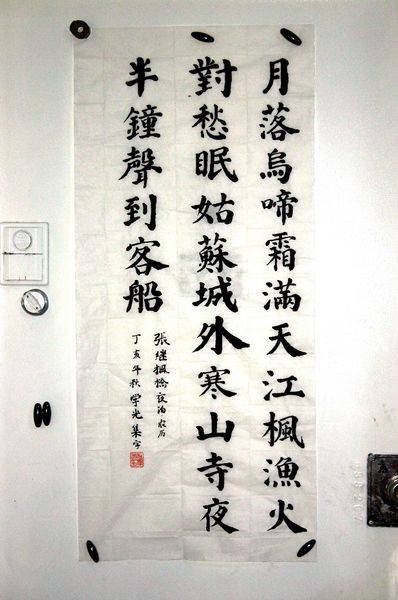 月落烏啼霜滿天江楓漁火
對愁眠姑蘇城外寒山寺夜
半鐘聲到客船
張继楓橋夜泊农历
丁亥年秋学光集字